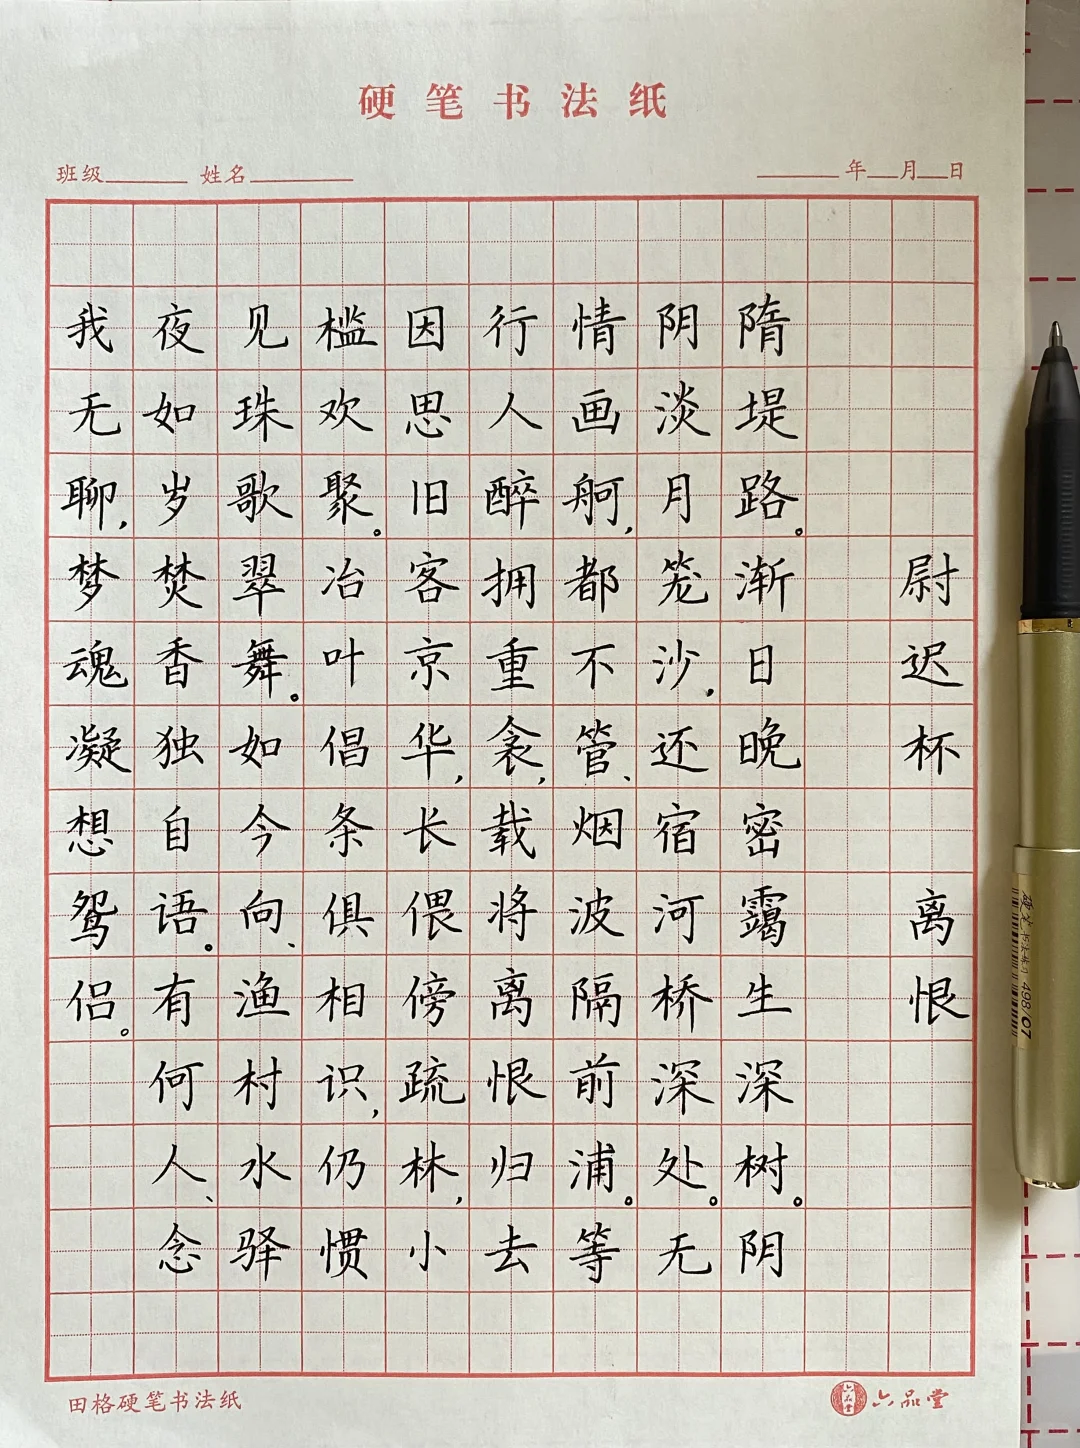 硬笔书法纸
班级 姓名 年 月 日
尉迟杯 离恨
隋堤路。渐日晚密霭生深树。阴
阴淡月笼沙,还宿河桥深处。无
情画舸,都不管、烟波隔前浦。等
行人醉拥重衾,载将离恨归去
因思旧客京华,长偎傍疏林,小
槛欢聚。冶叶倡条俱相识,仍惯
见珠歌翠舞。如今向、渔村水驿
夜如岁焚香独自语。有何人、念
我无聊,梦魂凝想鸳侣。
田格硬笔书法纸
六品堂
六品堂
硬笔书法练习 498/07